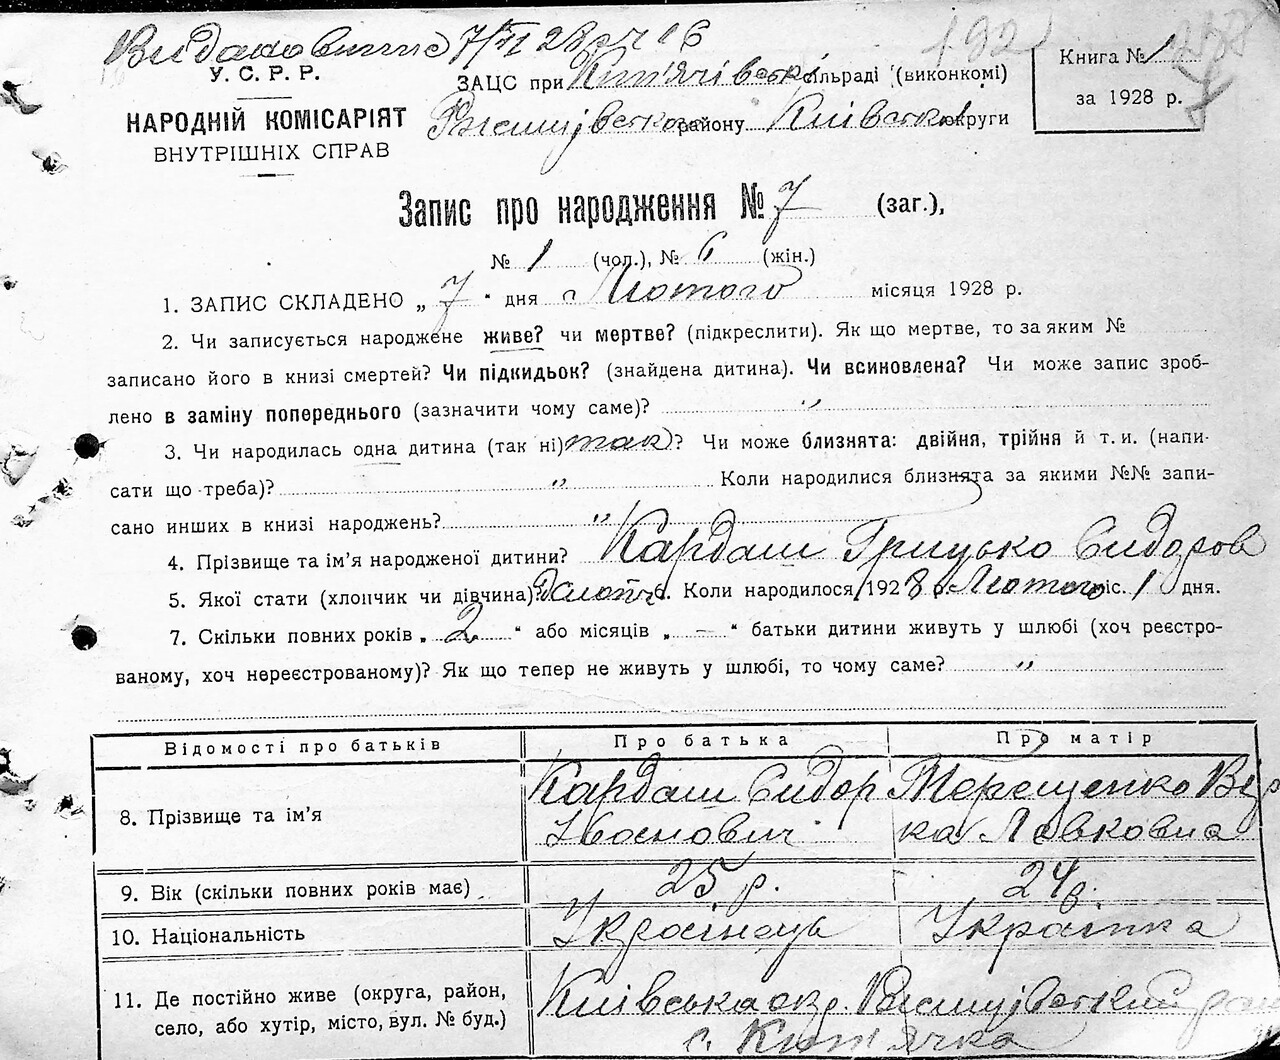 Видано виписс 7/VI 28 р № 16
У. С. Р. Р.
НАРОДНІЙ КОМІСАРІЯТ
ВНУТРІШНІХ СПРАВ
ЗАЦС при сільраді (виконкомі)
району Київської округи
Книга № 1
за 1928 р.
Запис про народження № 7 (заг.),
№ 1 (чол.), № 6 (жін.)
1. ЗАПИС СКЛАДЕНО „ 7 “ дня Лютого місяця 1928 р.
2. Чи записується народжене живе? чи мертве? (підкреслити). Як що мертве, то за яким №
записано його в книзі смертей? Чи підкидьок? (знайдена дитина). Чи всиновлена? Чи може запис зроб-
лено в заміну попереднього (зазначити чому саме)? „
3. Чи народилась одна дитина (так ні) так? Чи може близнята: двійня, трійня й т. и. (напи-
сати що треба)? „ Коли народилися близнята за якими №№ запи-
сано инших в книзі народжень? „
4. Прізвище та ім’я народженої дитини? Кардаш Грицько Сидоров
5. Якої стати (хлопчик чи дівчина)? Коли народилося 1928 р Лютого міс. 1 дня.
7. Скільки повних років „ 2 “ або місяців „ — “ батьки дитини живуть у шлюбі (хоч реєстро-
ваному, хоч нереєстрованому)? Як що тепер не живуть у шлюбі, то чому саме? „
Відомості про батьків Про батька Про матір
8. Прізвище та ім’я Кардаш Сидор Терещенко Вір
ка Левковна
9. Вік (скільки повних років має) 25 р. 24 р.
10. Національність Українець Українка
11. Де постійно живе (округа, район, Київська окр.
село, або хутір, місто, вул. № буд.) с.